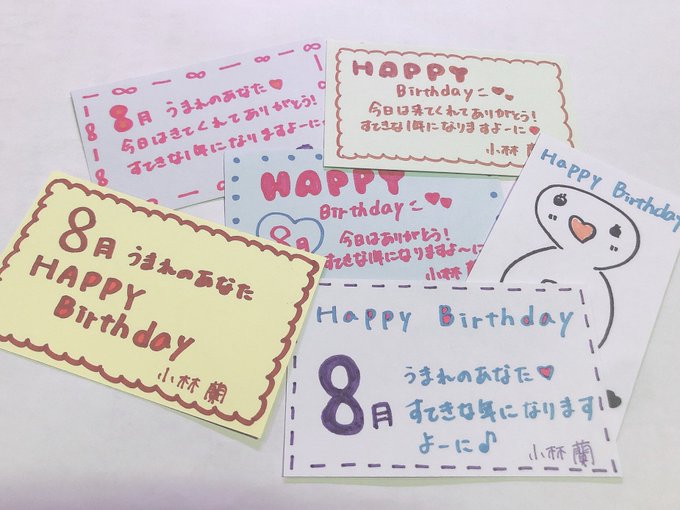 8月 うまれのあなた♥
今日はきてくれてありがとう!
すてきな1年になりますよーに
HAPPY
Birthday
今日は来てくれてありがとう!
すてきな1年になりますよーに♥
小林 蘭
HAPPY
Birthday
8月
今日はありがとう!
すてきな1年になりますよ〜に
小林 蘭
Happy Birthday
8月 うまれのあなた
HAPPY
Birthday
小林 蘭
Happy Birthday
8月 うまれのあなた♥
すてきな年になります
よーに♪
小林 蘭